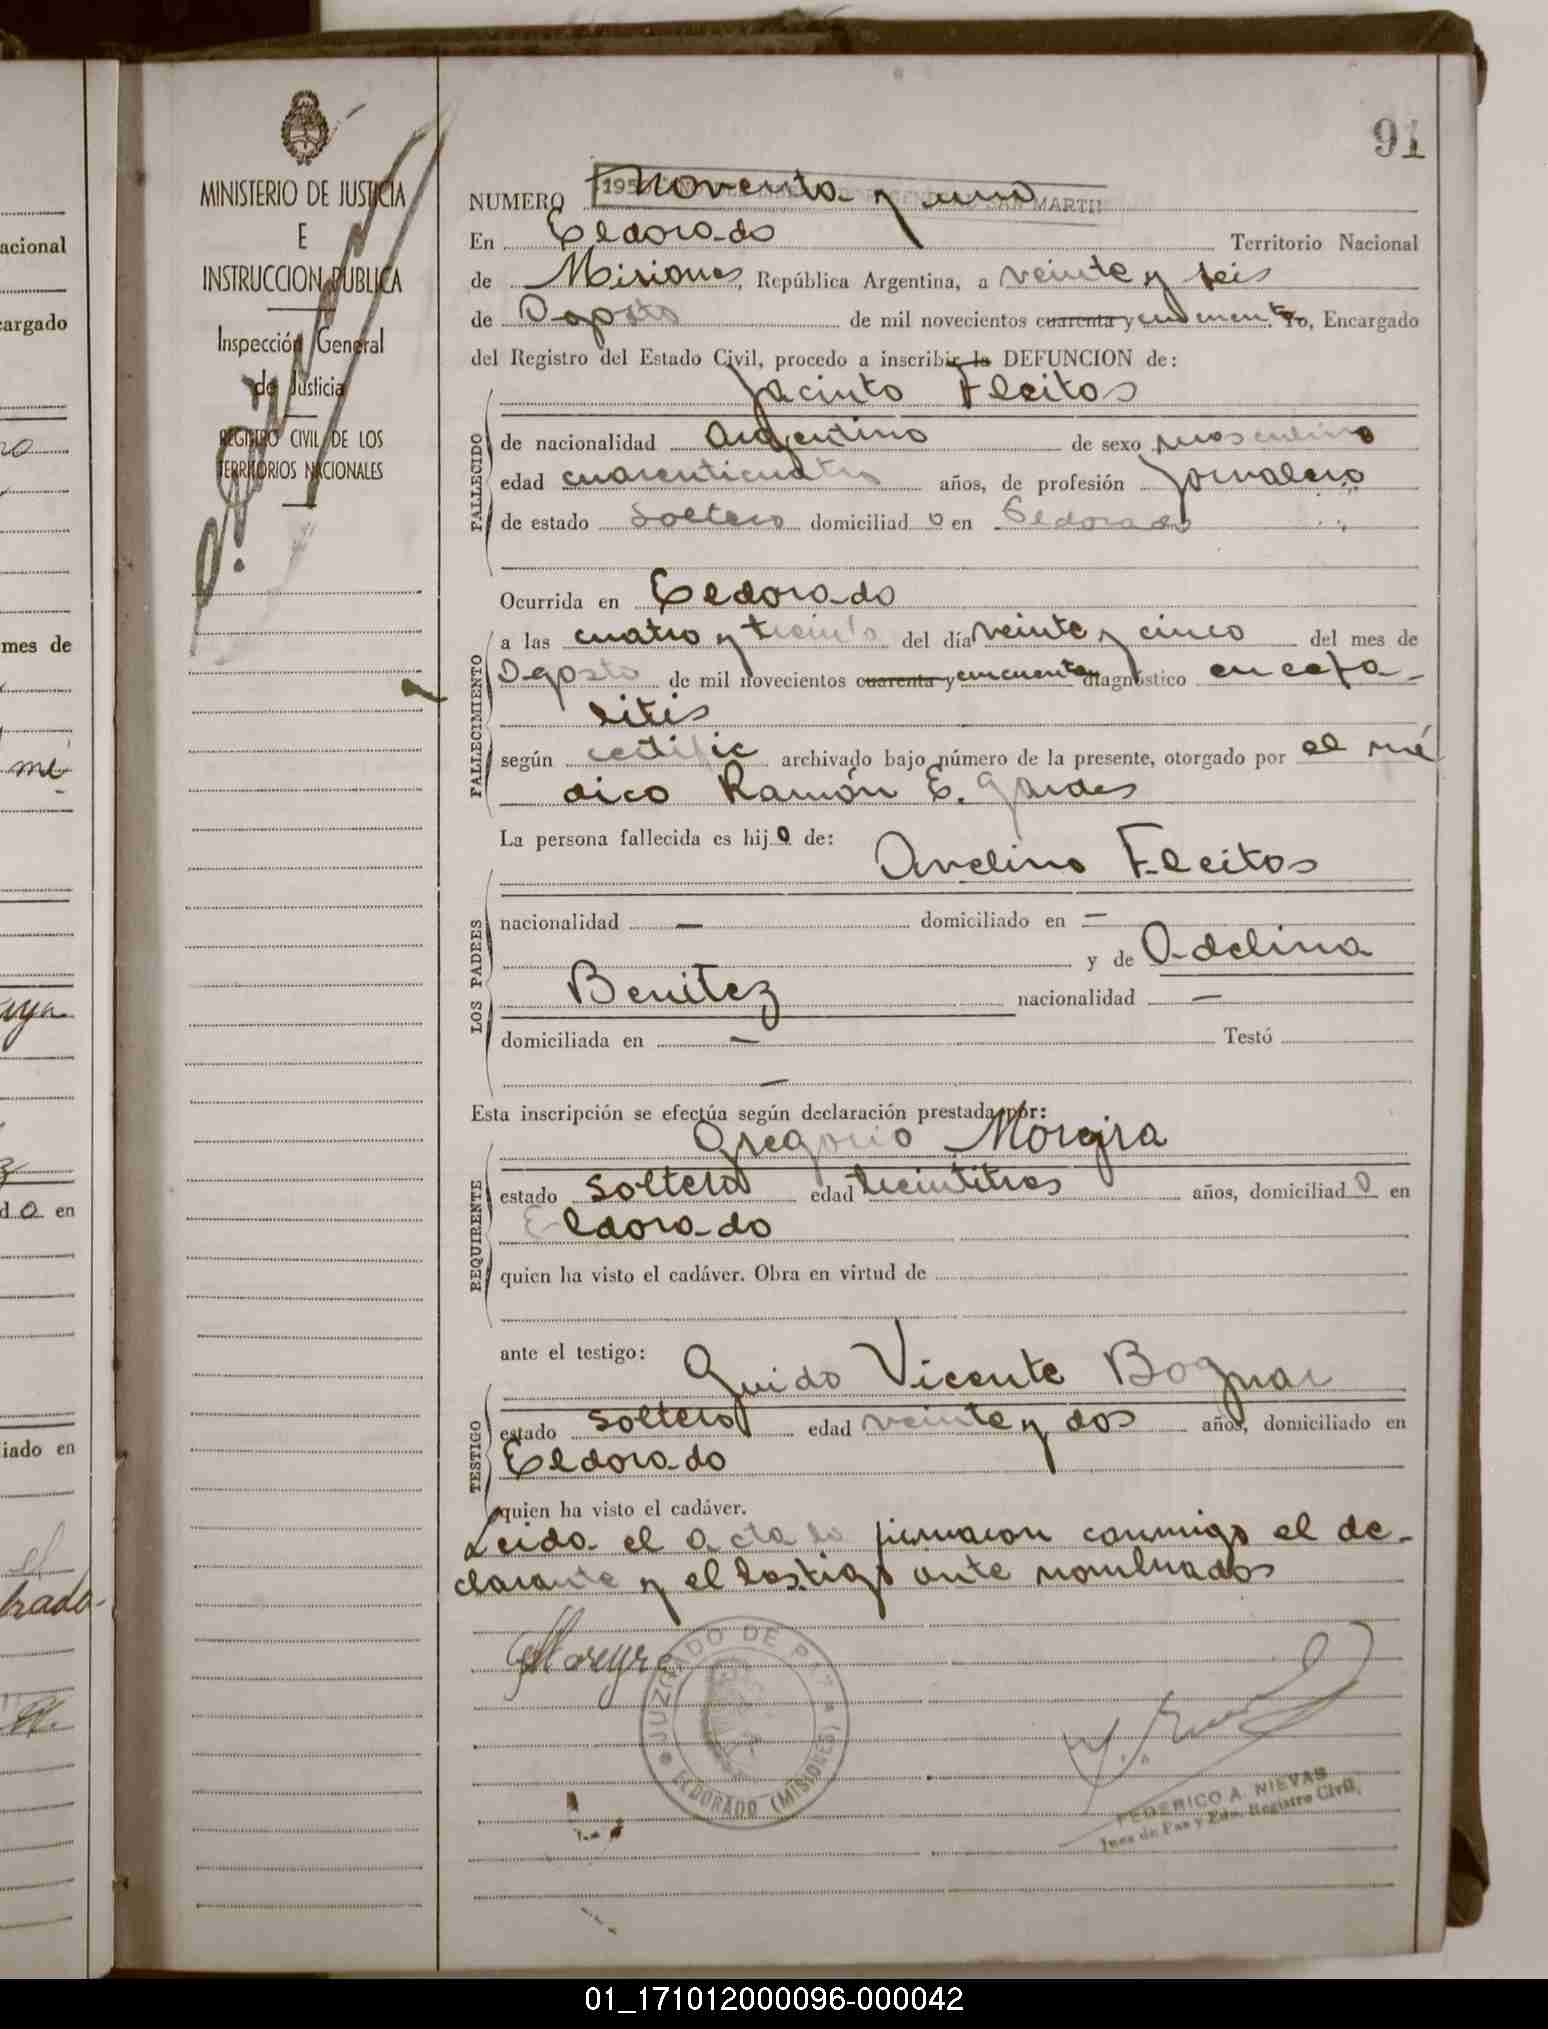 91
MINISTERIO DE JUSTICIA
E
INSTRUCCION PUBLICA
Inspección General
de Justicia
REGISTRO CIVIL DE LOS
TERRITORIOS NACIONALES
NUMERO Noventa y uno
En Eldorado Territorio Nacional
de Misiones, República Argentina, a veinte y seis
de Agosto de mil novecientos cuarenta y cincuenta. Yo, Encargado
del Registro del Estado Civil, procedo a inscribir la DEFUNCION de:
Jacinto Fleitas
FALLECIDO
de nacionalidad Argentino de sexo masculino
edad cuarenticuatro años, de profesión Jornalero
de estado soltero domiciliad o en Eldorado
Ocurrida en Eldorado
FALLECIMIENTO
a las cuatro y treinta del día veinte y cinco del mes de
Agosto de mil novecientos cuarenta y cincuenta diagnóstico encefa-
litis
según certific archivado bajo número de la presente, otorgado por el mé
dico Ramón E. Gardes
La persona fallecida es hij o de:
Avelino Fleitas
LOS PADRES
nacionalidad — domiciliado en —
y de Adelina
Benitez nacionalidad —
domiciliada en — Testó
—
Esta inscripción se efectúa según declaración prestada por:
Gregorio Moreira
REQUIRENTE
estado soltero edad treintitres años, domiciliad o en
Eldorado
quien ha visto el cadáver. Obra en virtud de
ante el testigo:
Guido Vicente Bognar
TESTIGO
estado soltero edad veinte y dos años, domiciliado en
Eldorado
quien ha visto el cadáver.
Leida el acta la firmaron conmigo el de-
clarante y el testigo ante nombrados
GMoreyra
JUZGADO DE PAZ
ELDORADO (MISIONES)
FEDERICO A. NIEVAS
Juez de Paz y Edo. Registro Civil
01_171012000096-000042